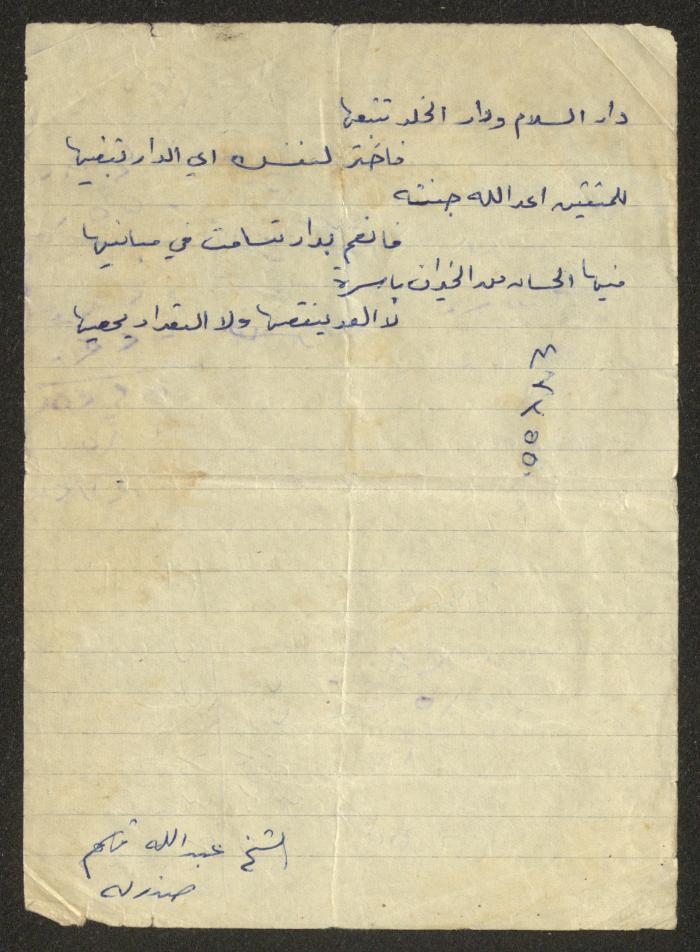 دار السلام ودار الخلد تتبعها
فاختر لنفسك اي الدار تبغيها
للمتقين اعد الله جنته
فانعم بدار تسامت في مبانيها
فيها الحسان من الخيرات باسرة
لا العد ينقصها ولا التعداد يحصيها
الشيخ عبد الله قاسم